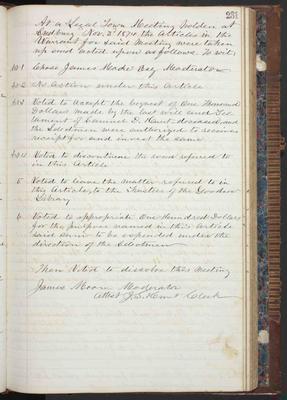 231
At a Legal Town Meeting holden at
Sudbury Nov. 3d 1874 the Articles in the
Warrant for said Meeting were taken
up and acted upon as follows. To wit,
No 1 Chose James Moore Esq Moderator
No 2 No Action under this Article
No 3 Voted to accept the bequest of One Thousand
Dollars made by the last will and Tes
tament of Samuel D. Hunt deceased, and
the Selectmen were authorized to receive
receipt for and invest the same
No 4 Voted to discontinue the road referred to
in this Article
5 Voted to leave the matter referred to in
this Article, to the Trustees of the Goodnow
Library
6 Voted to appropriate One Hundred Dollars
for the purpose named in this Article
said sum to be expended under the
direction of the Selectmen
Then Voted to dissolve this Meeting
James Moore Moderator
Attest J. S. Hunt Clerk